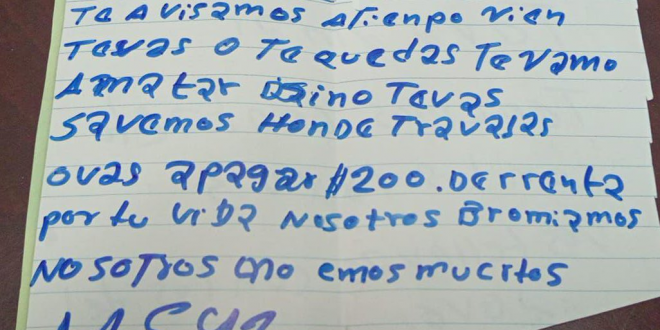 Te Avisamos ATienpo vien
Tevas o Te quedas Te vamo
Amatar sino Tevas
Savemos Honde Travajas
ovas apagar $200. De rrenta
por tu viDa Nosotros Bromiamos
NosoTros no emos muertos